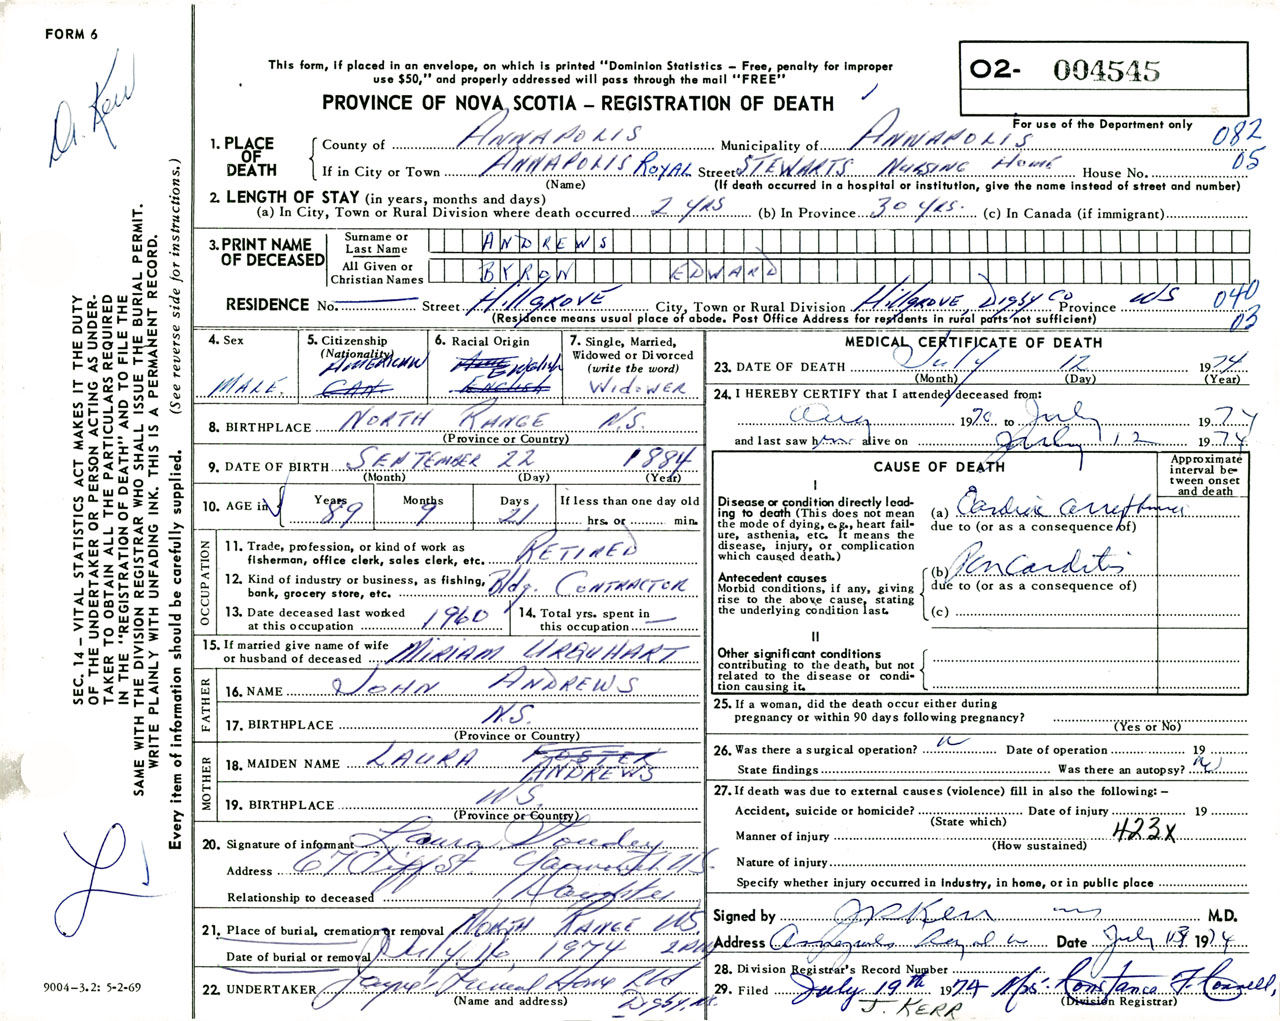 FORM 6
Dr. Kerr
This form, if placed in an envelope, on which is printed "Dominion Statistics – Free, penalty for improper
use $50," and properly addressed will pass through the mail "FREE"
PROVINCE OF NOVA SCOTIA – REGISTRATION OF DEATH
O2- 004545
For use of the Department only
082
05
1. PLACE OF DEATH
County of ANNAPOLIS Municipality of ANNAPOLIS
If in City or Town ANNAPOLIS ROYAL Street STEWARTS NURSING HOME House No.
(Name) (If death occurred in a hospital or institution, give the name instead of street and number)
2. LENGTH OF STAY (in years, months and days)
(a) In City, Town or Rural Division where death occurred 2 YRS (b) In Province 30 YRS. (c) In Canada (if immigrant)
3. PRINT NAME OF DECEASED
Surname or Last Name ANDREWS
All Given or Christian Names BYRON EDWARD
RESIDENCE No. Street HILLGROVE City, Town or Rural Division Hillgrove, Digby Co Province NS
040
03
(Residence means usual place of abode. Post Office Address for residents in rural parts not sufficient)
4. Sex
MALE.
5. Citizenship
(Nationality)
AMERICAN
CAN
6. Racial Origin
ENGLISH
ENGLISH
7. Single, Married,
Widowed or Divorced
(write the word)
WIDOWER
8. BIRTHPLACE NORTH RANGE N.S.
(Province or Country)
9. DATE OF BIRTH SEPTEMBER 22 1884
(Month) (Day) (Year)
10. AGE in Years 89 Months 9 Days 21 If less than one day old
hrs. or min.
OCCUPATION
11. Trade, profession, or kind of work as
fisherman, office clerk, sales clerk, etc. RETIRED
12. Kind of industry or business, as fishing,
bank, grocery store, etc. Bldg. CONTRACTOR
13. Date deceased last worked
at this occupation 1960
14. Total yrs. spent in
this occupation —
15. If married give name of wife
or husband of deceased MIRIAM URQUHART
FATHER
16. NAME JOHN ANDREWS
17. BIRTHPLACE N.S.
(Province or Country)
MOTHER
18. MAIDEN NAME LAURA FOSTER
ANDREWS
19. BIRTHPLACE N.S.
(Province or Country)
20. Signature of informant Laura
Address 67 St. N.S.
Relationship to deceased Daughter
21. Place of burial, cremation or removal NORTH RANGE NS.
Date of burial or removal July 16, 1974 2 PM
22. UNDERTAKER Jayne's Funeral Home Ltd
(Name and address) DIGBY, NS.
MEDICAL CERTIFICATE OF DEATH
23. DATE OF DEATH July 12 1974
(Month) (Day) (Year)
24. I HEREBY CERTIFY that I attended deceased from:
Aug 1970 to July 1974
and last saw him alive on July 12 1974
CAUSE OF DEATH
Approximate interval between onset and death
I
Disease or condition directly leading
to death (This does not mean
the mode of dying, e.g., heart failure,
asthenia, etc. It means the
disease, injury, or complication
which caused death.)
(a) Cardiac arrythmia
due to (or as a consequence of)
Antecedent causes
Morbid conditions, if any, giving
rise to the above cause, stating
the underlying condition last.
(b) Pericarditis
due to (or as a consequence of)
(c)
II
Other significant conditions
contributing to the death, but not
related to the disease or condition
causing it.
25. If a woman, did the death occur either during
pregnancy or within 90 days following pregnancy?
(Yes or No)
26. Was there a surgical operation? Date of operation 19
State findings Was there an autopsy? No
27. If death was due to external causes (violence) fill in also the following: –
Accident, suicide or homicide? Date of injury 19
(State which)
Manner of injury 423X
(How sustained)
Nature of injury
Specify whether injury occurred in industry, in home, or in public place
Signed by Kerr M.D.
Address Annapolis Royal NS Date July 13 1974
28. Division Registrar's Record Number
29. Filed July 19th 1974 Mrs. Constance F. Connell,
(Division Registrar)
J. KERR
SEC. 14 – VITAL STATISTICS ACT MAKES IT THE DUTY
OF THE UNDERTAKER OR PERSON ACTING AS UNDER-
TAKER TO OBTAIN ALL THE PARTICULARS REQUIRED
IN THE "REGISTRATION OF DEATH" AND TO FILE THE
SAME WITH THE DIVISION REGISTRAR WHO SHALL ISSUE THE BURIAL PERMIT.
WRITE PLAINLY WITH UNFADING INK. THIS IS A PERMANENT RECORD.
Every item of information should be carefully supplied. (See reverse side for instructions.)
9004–3.2: 5-2-69